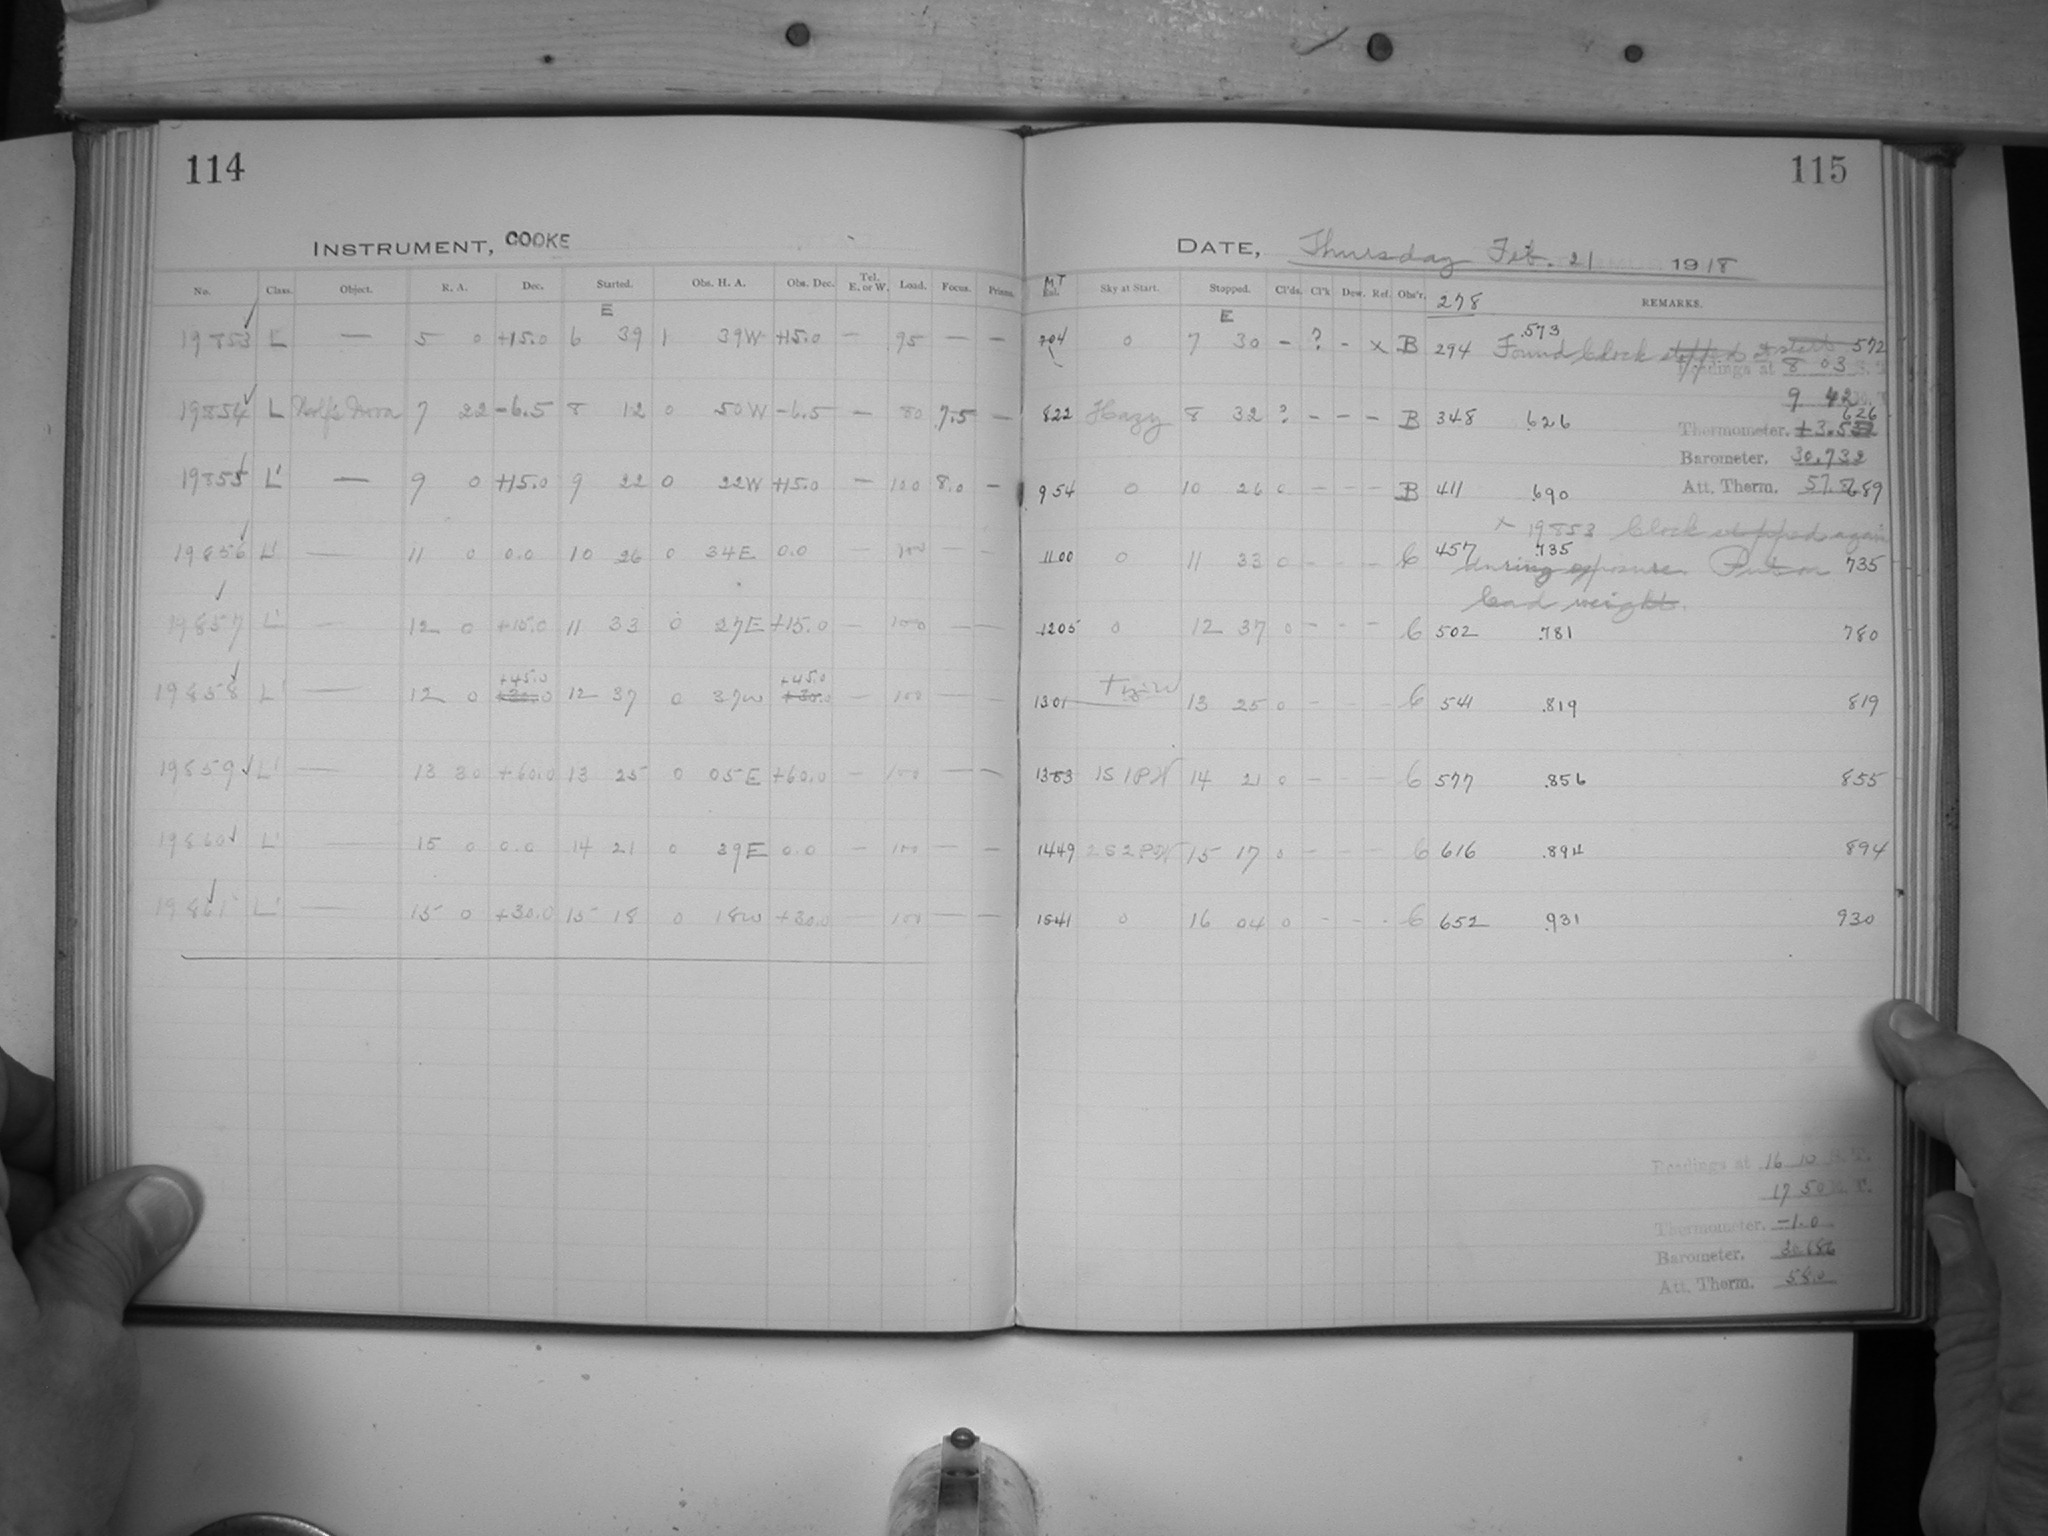 114
INSTRUMENT, COOKE
No. Class. Object. R. A. Dec. Started. Obs. H. A. Obs. Dec. Tel. E. or W. Load. Focus. Prisms.
E
19853 L — 5 0 +15.0 6 39 1 39W +15.0 — 95 — —
19854 L Wolf's Nova 7 22 -6.5 8 12 0 50W -6.5 — 80 7.5 —
19855 L' — 9 0 +15.0 9 22 0 22W +15.0 — 120 8.0 —
19856 L' — 11 0 0.0 10 26 0 34E 0.0 — 100 — —
19857 L' — 12 0 +15.0 11 33 0 27E +15.0 — 100 — —
+45.0 +45.0
19858 L' — 12 0 +30.0 12 37 0 37W +30.0 — 100 — —
19859 L' — 13 30 +60.0 13 25 0 05E +60.0 — 100 — —
19860 L' — 15 0 0.0 14 21 0 39E 0.0 — 100 — —
19861 L' — 15 0 +30.0 15 18 0 18W +30.0 — 100 — —
115
DATE, Thursday Feb. 21 1918
M T Sky at Start. Stopped. Cl'ds. Cl'k Dew. Ref. Obs'r. 278 REMARKS.
E
704 0 7 30 - ? - x B 294 .573 Found Clock stopped at start 572
Readings at 8 03 S. T.
9 42
822 Hazy 8 32 ? - - - B 348 .626 626
Thermometer, +3.5
Barometer, 30.732
954 0 10 26 0 - - - B 411 .690 Att. Therm. 57.8 689
x 19853 Clock stopped again
1100 0 11 33 0 - - - C 457 .735 735
during exposure. Put on
lead weights.
1205 0 12 37 0 - - - C 502 .781 780
1301 13 25 0 - - - C 541 .819 819
1353 1S1PW 14 21 0 - - - C 577 .856 855
1449 2S2PW 15 17 0 - - - C 616 .894 894
1541 0 16 04 0 - - - C 652 .931 930
Readings at 16 10 S. T.
17 50 M. T.
Thermometer, -1.0
Barometer, 30.686
Att. Therm. 58.0